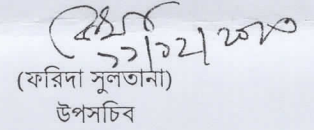 ১১/১২/২০১৩
(ফরিদা সুলতানা)
উপসচিব